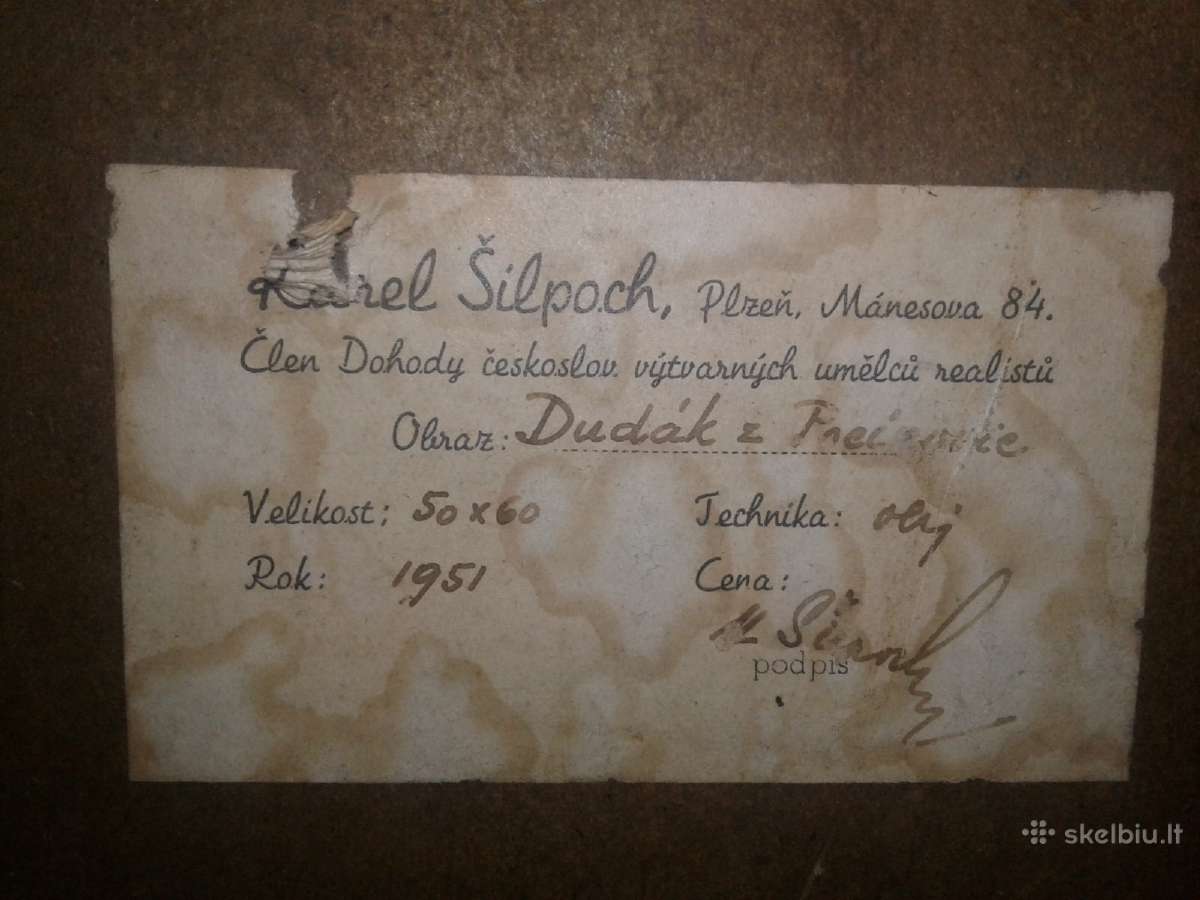 Karel Šilpoch, Plzeň, Mánesova 84.
Člen Dohody českoslov. výtvarných umělců realistů
Obraz: Dudák z
Velikost: 50 x 60
Technika: olej
Rok: 1951
Cena:
podpis
skelbiu.lt